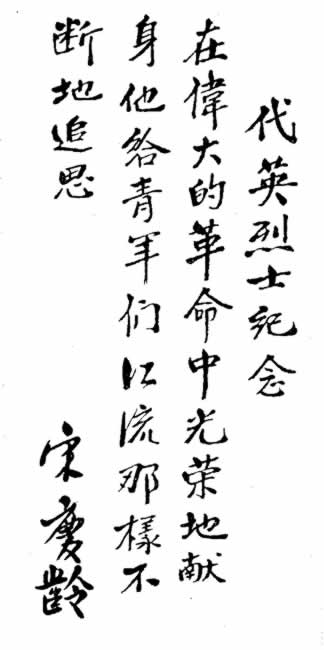 代英烈士纪念
在偉大的革命中光荣地献
身他给青年们江流那樣不
断地追思
宋慶齡